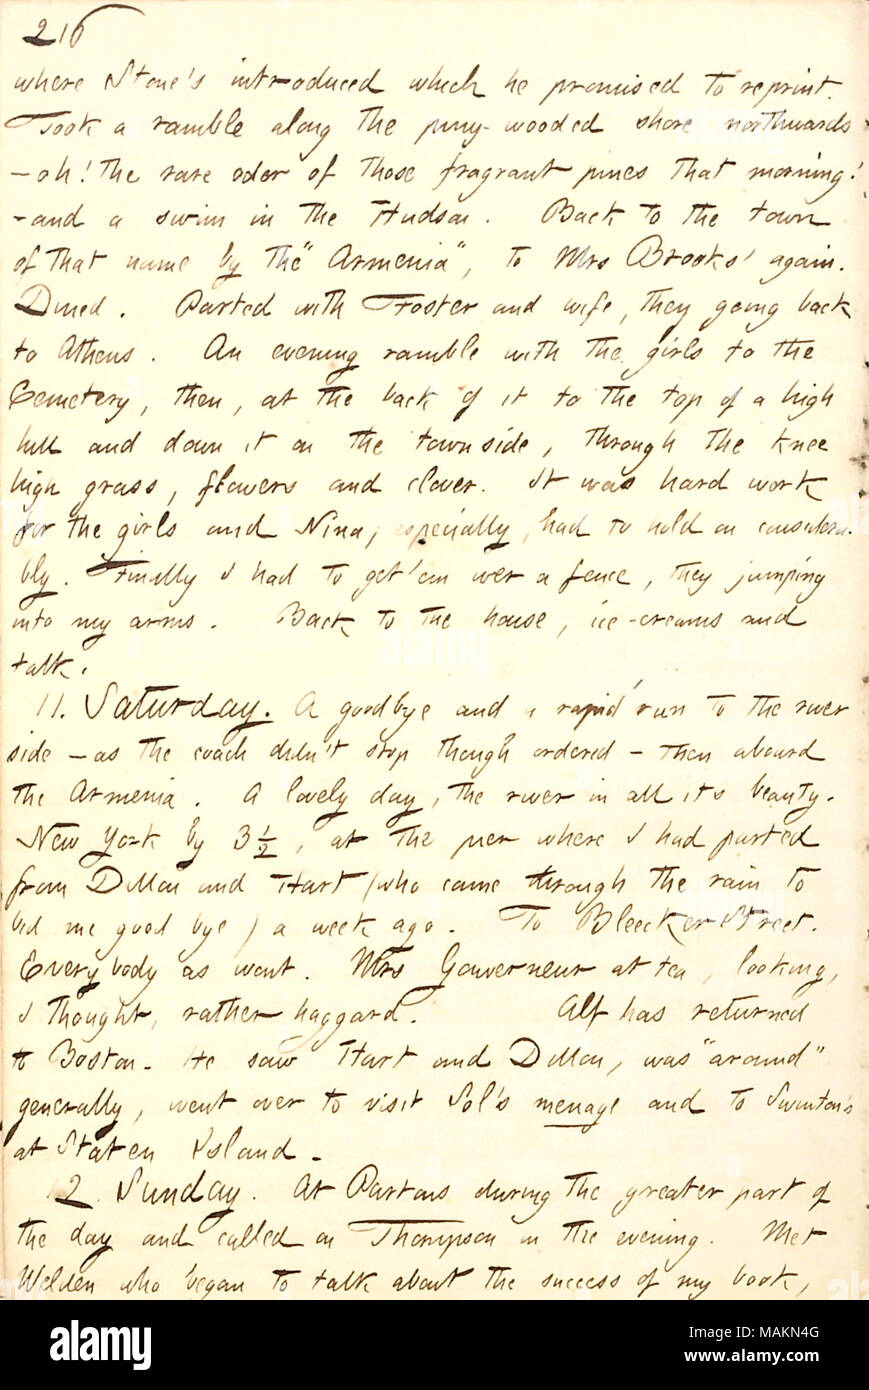 216
where Stone's introduced which he promised to reprint.
Took a ramble along the piny-wooded shore northwards
- oh! the rare odor of those fragrant pines that morning!
- and a swim in the Hudson. Back to the town
of that name by the "Armenia", to Mrs Brooks' again.
Dined. Parted with Froster and wife, they going back
to Athens. An evening ramble with the girls to the
Cemetery, then, at the back of it to the top of a high
hill and down it on the town side, through the knee
high grass, flowers and clover. It was hard work
for the girls and Nina, especially, had to hold on considera-
bly. Finally I had to get 'em over a fence, they jumping
into my arms. Back to the house, ice-creams and
talk.
11. Saturday. A goodbye and a rapid run to the river
side - as the coach didn't stop though ordered - then aboard
the Armenia. A lovely day, the river in all its beauty.
New York by 3 ½, at the pier where I had parted
from Dillon and Hart (who came through the rain to
bid me good bye) a week ago. To Bleecker Street.
Everybody as wont. Mrs Gouverneur at tea, looking,
I thought, rather haggard. Alf has returned
to Boston. He saw Hart and Dillon, was "around"
generally, went over to visit Sol's menage and to Swinton's
at Staten Island.
12. Sunday. At Partons during the greater part of
the day and called on Thompson in the evening. Met
Welden who began to talk about the success of my book,
alamy
Image ID: MAKN4G
www.alamy.com